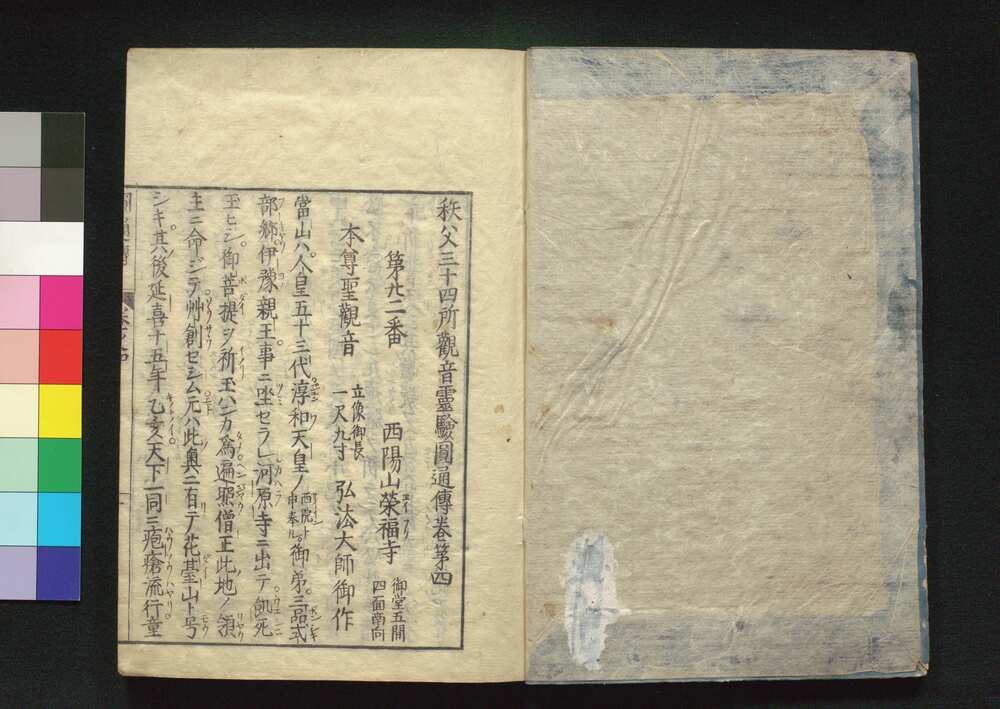 秩父三十四所觀音靈驗圓通傳卷第四
第廿二番 西陽山榮福寺 御堂五間四面南向
本尊聖觀音 立像御長一尺九寸 弘法大師御作
當山ハ人皇五十三代淳和天皇ノ 西院ト申奉ル 御弟三品式
部卿伊豫親王事ニ坐セラレ河原寺ニ出テ飢死
玉ヒシ御菩提ヲ祈玉ハンカ爲遍照僧正此地ノ領
主ニ命ジテ艸創セシム元ハ此奥ニ有テ花臺山ト号
シキ其後延喜十五年乙亥天下一同ニ疱瘡流行童